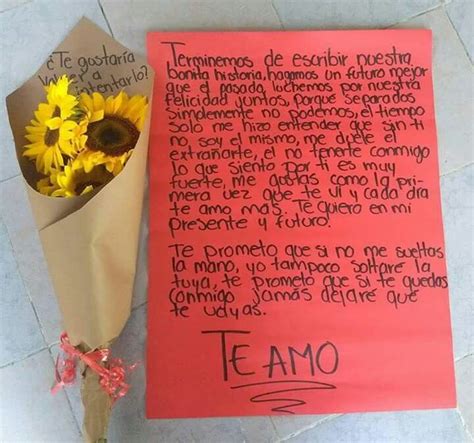 ¿Te gustaría
volver a
intentarlo?
Terminemos de escribir nuestra
bonita historia, hagamos un futuro mejor
que el pasado, luchemos por nuestra
felicidad juntos, porque separados
simplemente no podemos, el tiempo
solo me hizo entender que sin ti
no soy el mismo, me duele el
extrañarte, el no tenerte conmigo
lo que siento por ti es muy
fuerte, me gustas como la pri-
mera vez que te vi y cada día
te amo mas. Te quiero en mi
presente y futuro!
Te prometo que si no me sueltas
la mano, yo tampoco soltare la
tuya, te prometo que si te quedas
conmigo jamás dejaré que
te vayas.
TE AMO